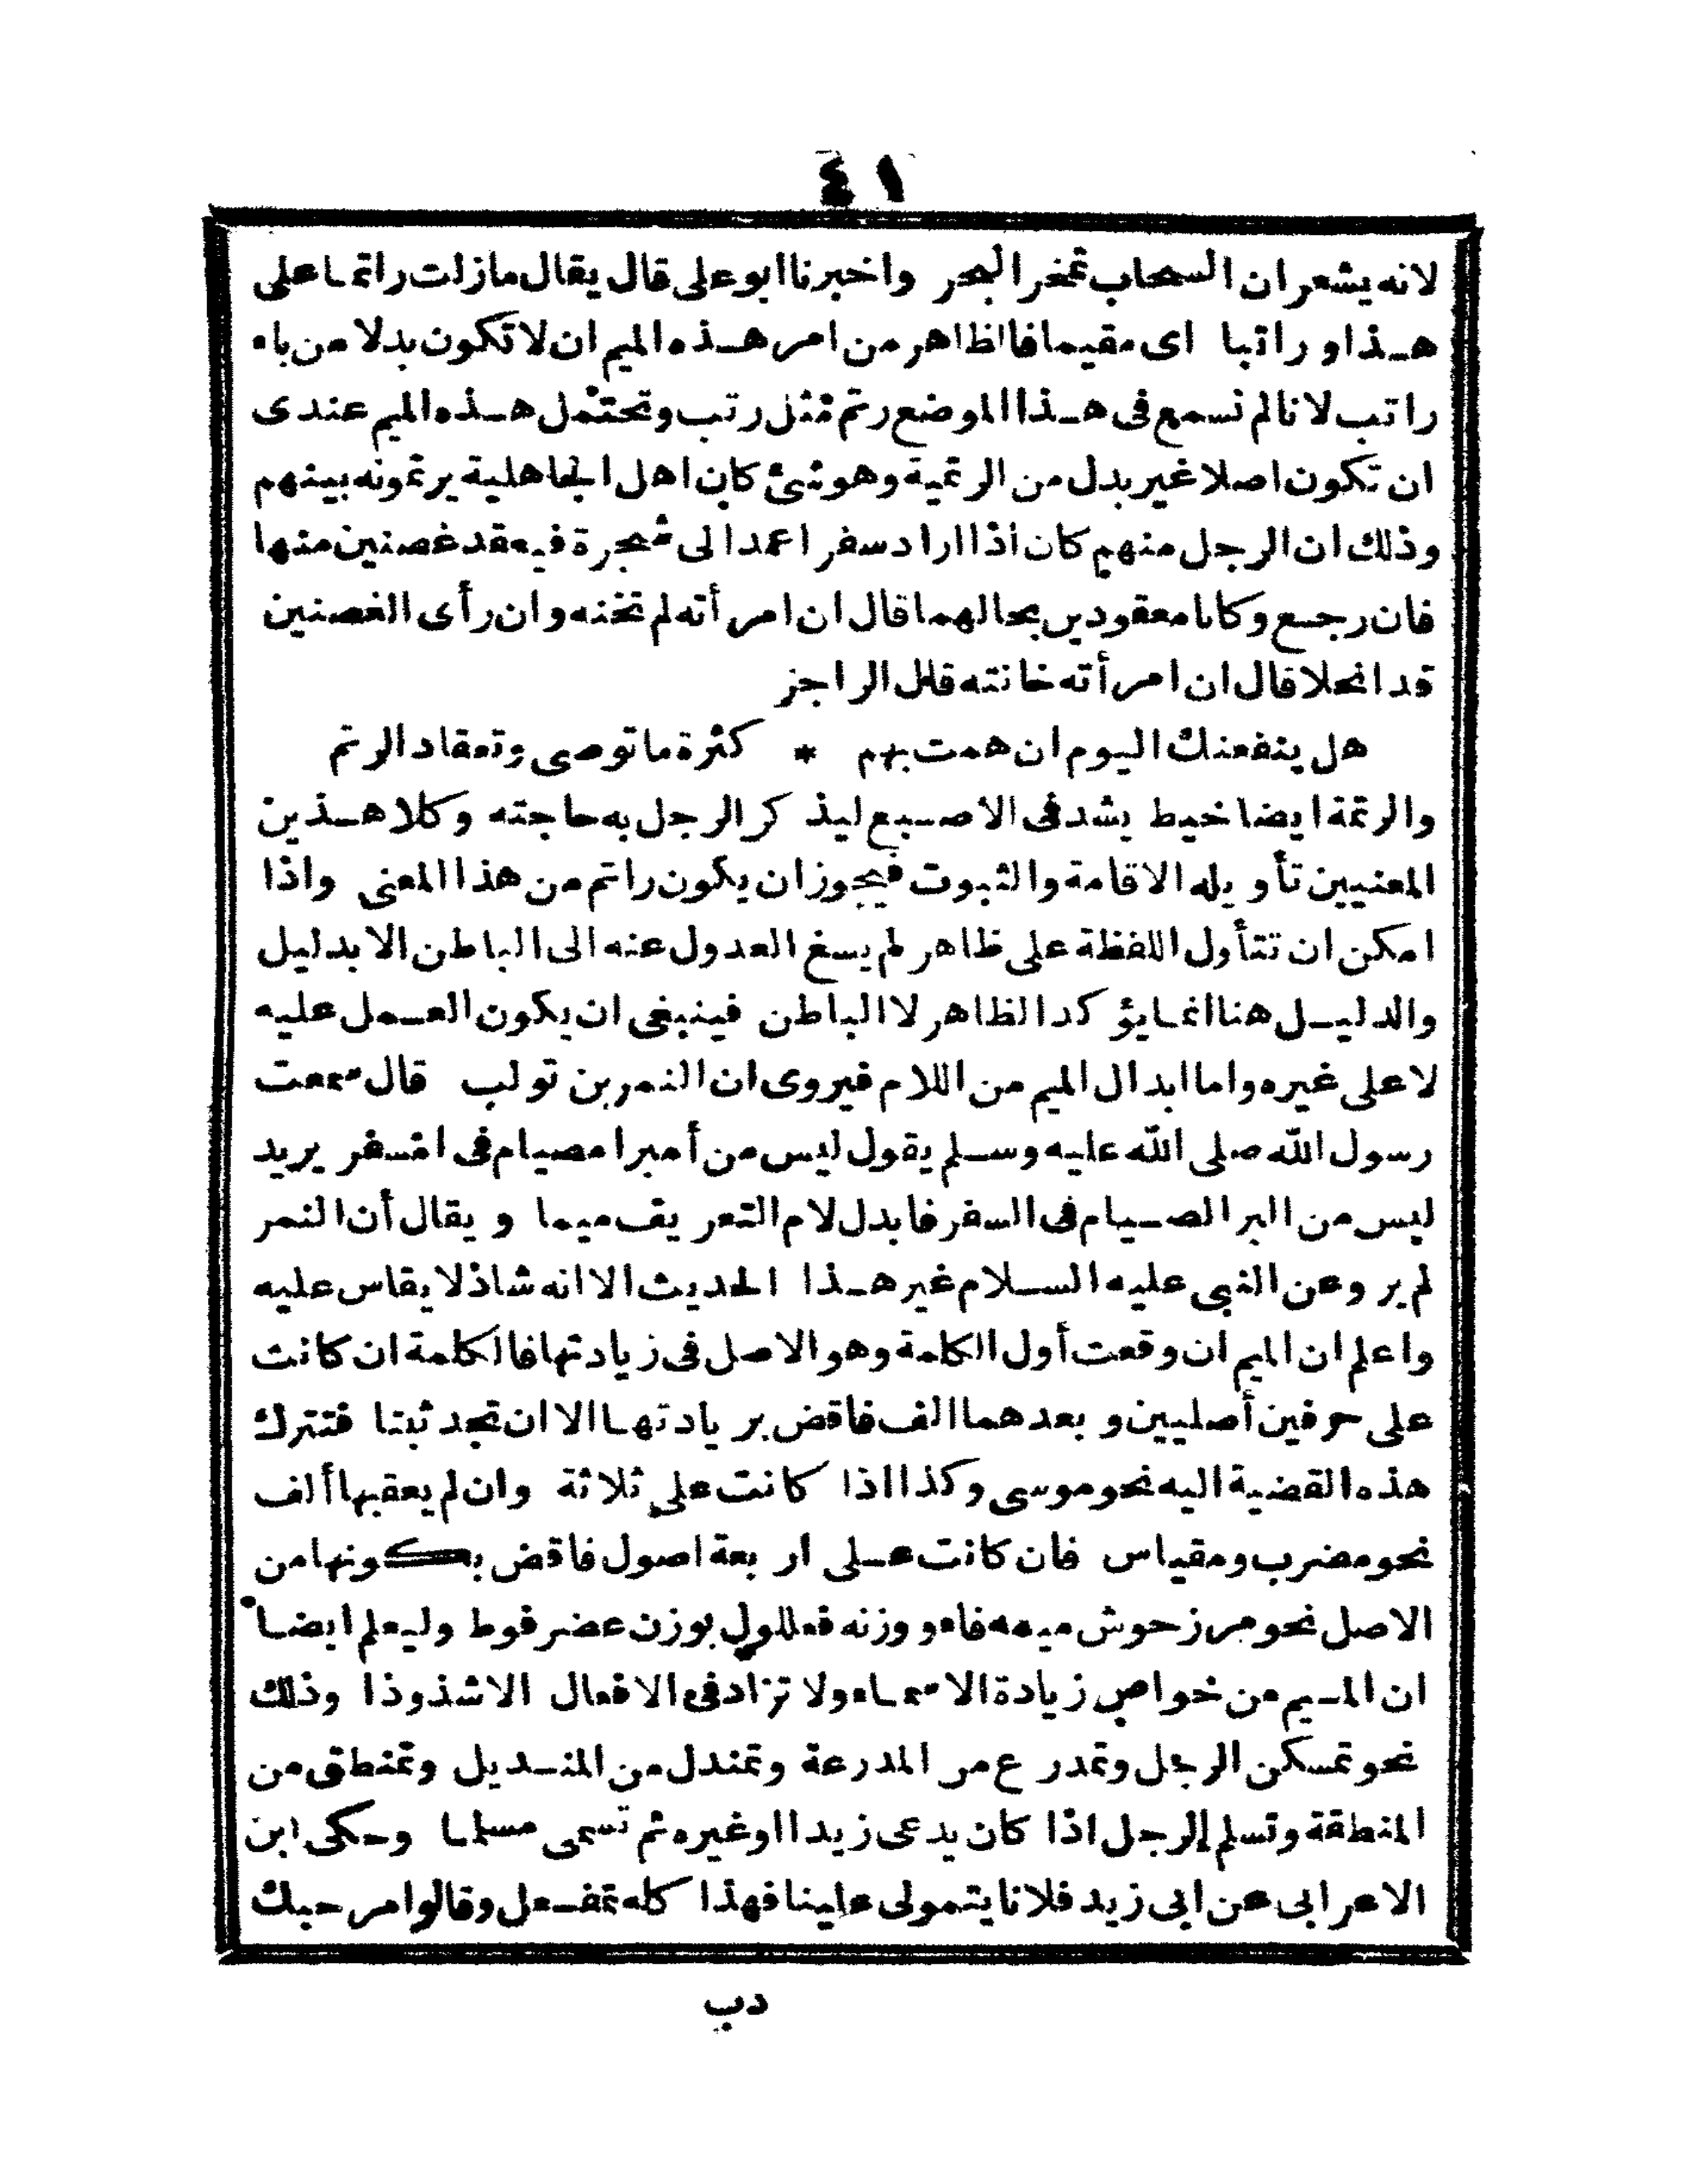 ٤١
لانه يشعر ان السحاب تمخر البحر واخبرنا ابو على قال يقال مازلت راتما على
هذا و راتبا اى مقيما فالظاهر من امر هذه الميم ان لا تكون بدلا من باء
راتب لانا لم نسمع فى هذا الموضع رتم مثل رتب وتحتمل هذه الميم عندى
ان تكون اصلا غير بدل من الرتمية وهو شئ كان اهل الجاهلية يرتمونه بينهم
وذلك ان الرجل منهم كان اذا اراد سفرا عمد الى شجرة فيعقد غصنين منها
فان رجع وكانا معقودين بحالهما قال ان امرأته لم تخنه وان رأى الغصنين
قد انحلا قال ان امرأته خانته قال الراجز
هل ينفعنك اليوم ان همت بهم * كثرة ما توصى وتعقاد الرتم
والرتمة ايضا خيط يشد فى الاصبع ليذكر الرجل به حاجته وكلا هذين
المعنيين تأويله الاقامة والثبوت فيجوز ان يكون راتم من هذا المعنى واذا
امكن ان تتأول اللفظة على ظاهر لم يسغ العدول عنه الى الباطن الا بدليل
والدليل هنا انما يؤكد الظاهر لا الباطن فينبغى ان يكون العمل عليه
لا على غيره واما ابدال الميم من اللام فيروى ان النمر بن تولب قال سمعت
رسول الله صلى الله عليه وسلم يقول ليس من أمبر امصيام فى امسفر يريد
ليس من البر الصيام فى السفر فابدل لام التعريف ميما و يقال أن النمر
لم يرو عن النبى عليه السلام غير هذا الحديث الا انه شاذ لا يقاس عليه
واعلم ان الميم ان وقعت أول الكلمة وهو الاصل فى زيادتها فالكلمة ان كانت
على حرفين أصليين و بعدهما الف فاقض بر يادتها الا ان تجد ثبتا فتترك
هذه القضية اليه نحو موسى وكذا اذا كانت على ثلاثة وان لم يعقبها ألف
نحو مضرب ومقياس فان كانت على اربعة اصول فاقض بكونها من
الاصل نحو مرزحوش ميمه فاء و وزنه فعللول بوزن عضرفوط وليعلم ايضا
ان الميم من خواص زيادة الاسماء ولا تزاد فى الافعال الا شذوذا وذلك
نحو تمسكن الرجل وتمدرع من المدرعة وتمندل من المنديل وتمنطق من
المنطقة وتسلم الرجل اذا كان يدعى زيدا اوغيره ثم تسمى مسلما وحكى ابن
الاعرابى عن ابى زيد فلانا يتمولى علينا فهذا كله تمفعل وقالوا مرحبك
دب